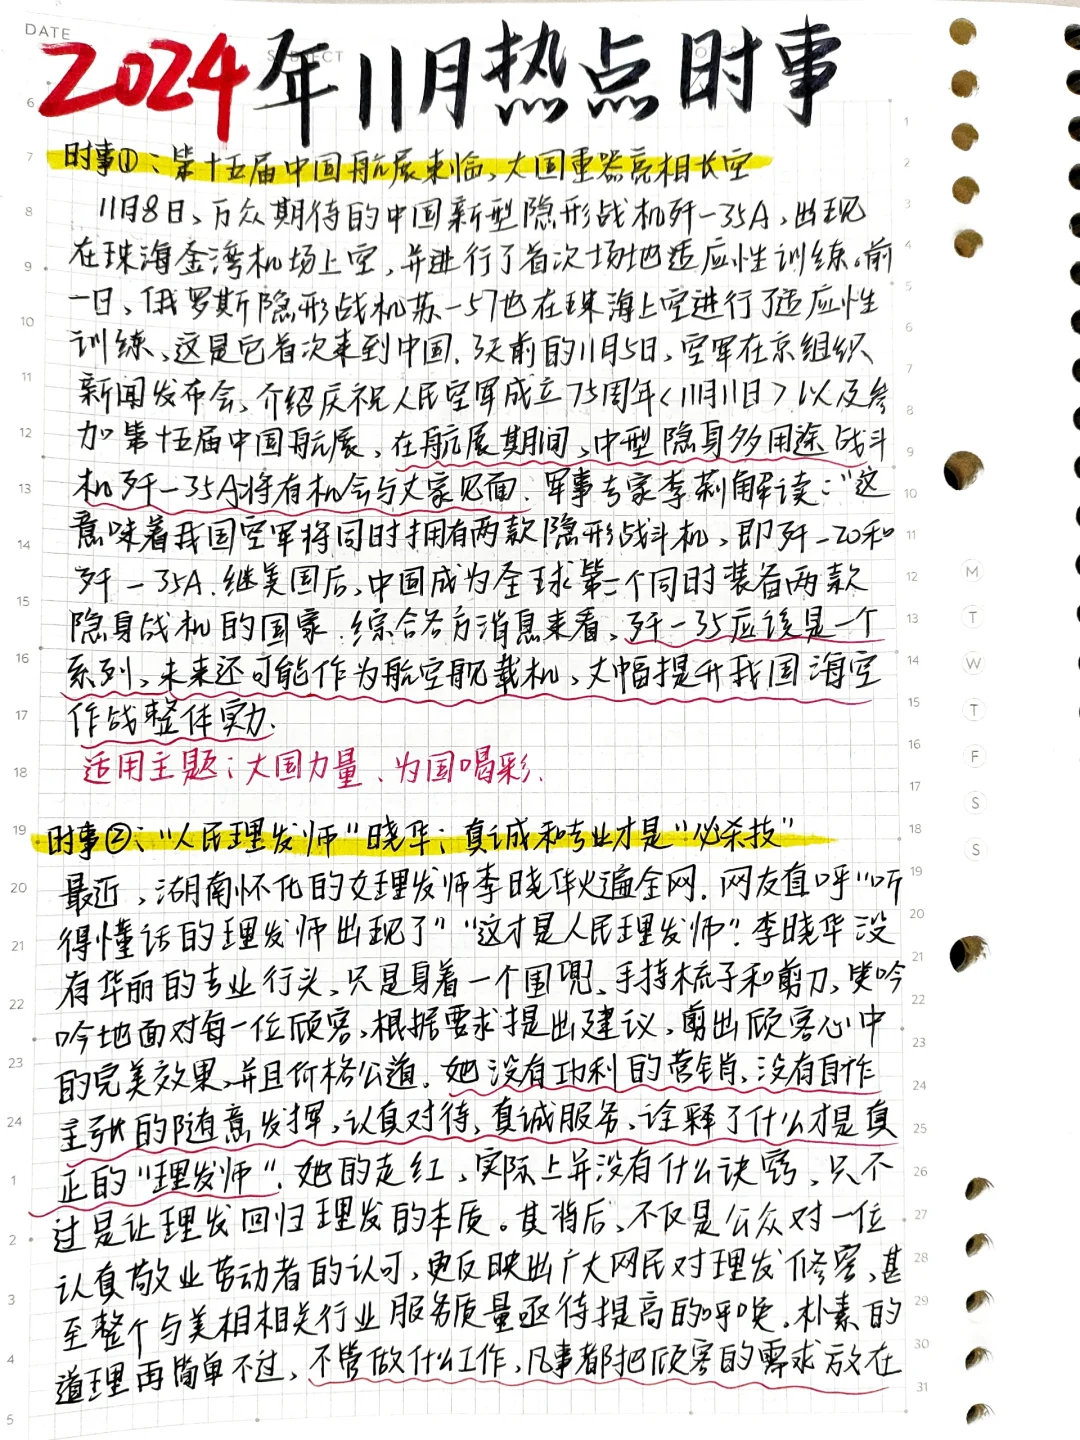 DATE
SUBJECT
2024年11月热点时事
时事①：第十五届中国航展来临、大国重器亮相长空
11月8日、万众期待的中国新型隐形战机歼-35A、出现
在珠海金湾机场上空，并进行了首次场地适应性训练。前
一日，俄罗斯隐形战机苏-57也在珠海上空进行了适应性
训练、这是它首次来到中国．3天前的11月5日，空军在京组织
新闻发布会，介绍庆祝人民空军成立75周年<11月11日>以及参
加第十五届中国航展、在航展期间、中型隐身多用途战斗
机歼-35A将有机会与大家见面．军事专家李莉解读：“这
意味着我国空军将同时拥有两款隐形战斗机、即歼-20和
歼-35A．继美国后，中国成为全球第二个同时装备两款
隐身战机的国家．综合各方消息来看，歼-35应该是一个
系列、未来还可能作为航空舰载机、大幅提升我国海空
作战整体实力．
适用主题：大国力量、为国喝彩．
时事②：“人民理发师”晓华：真诚和专业才是“必杀技”
最近，湖南怀化的女理发师李晓华火遍全网．网友直呼“听
得懂话的理发师出现了”“这才是人民理发师”．李晓华没
有华丽的专业行头，只是身着一个围兜、手持梳子和剪刀，笑吟
吟地面对每一位顾客，根据要求提出建议，剪出顾客心中
的完美效果，并且价格公道．她没有功利的营销、没有自作
主张的随意发挥，认真对待，真诚服务、诠释了什么才是真
正的“理发师”．她的走红，实际上并没有什么诀窍，只不
过是让理发回归理发的本质。其背后，不仅是公众对一位
认真敬业劳动者的认可，更反映出广大网民对理发修容，甚
至整个与美相相关行业服务质量亟待提高的呼唤．朴素的
道理再简单不过，不管做什么工作，凡事都把顾客的需求放在
6
7
8
9
10
11
12
13
14
15
16
17
18
19
20
21
22
23
24
1
2
3
4
5
1
2
3
4
5
6
7
8
9
10
11
12
13
14
15
16
17
18
19
20
21
22
23
24
25
26
27
28
29
30
31
M
T
W
T
F
S
S